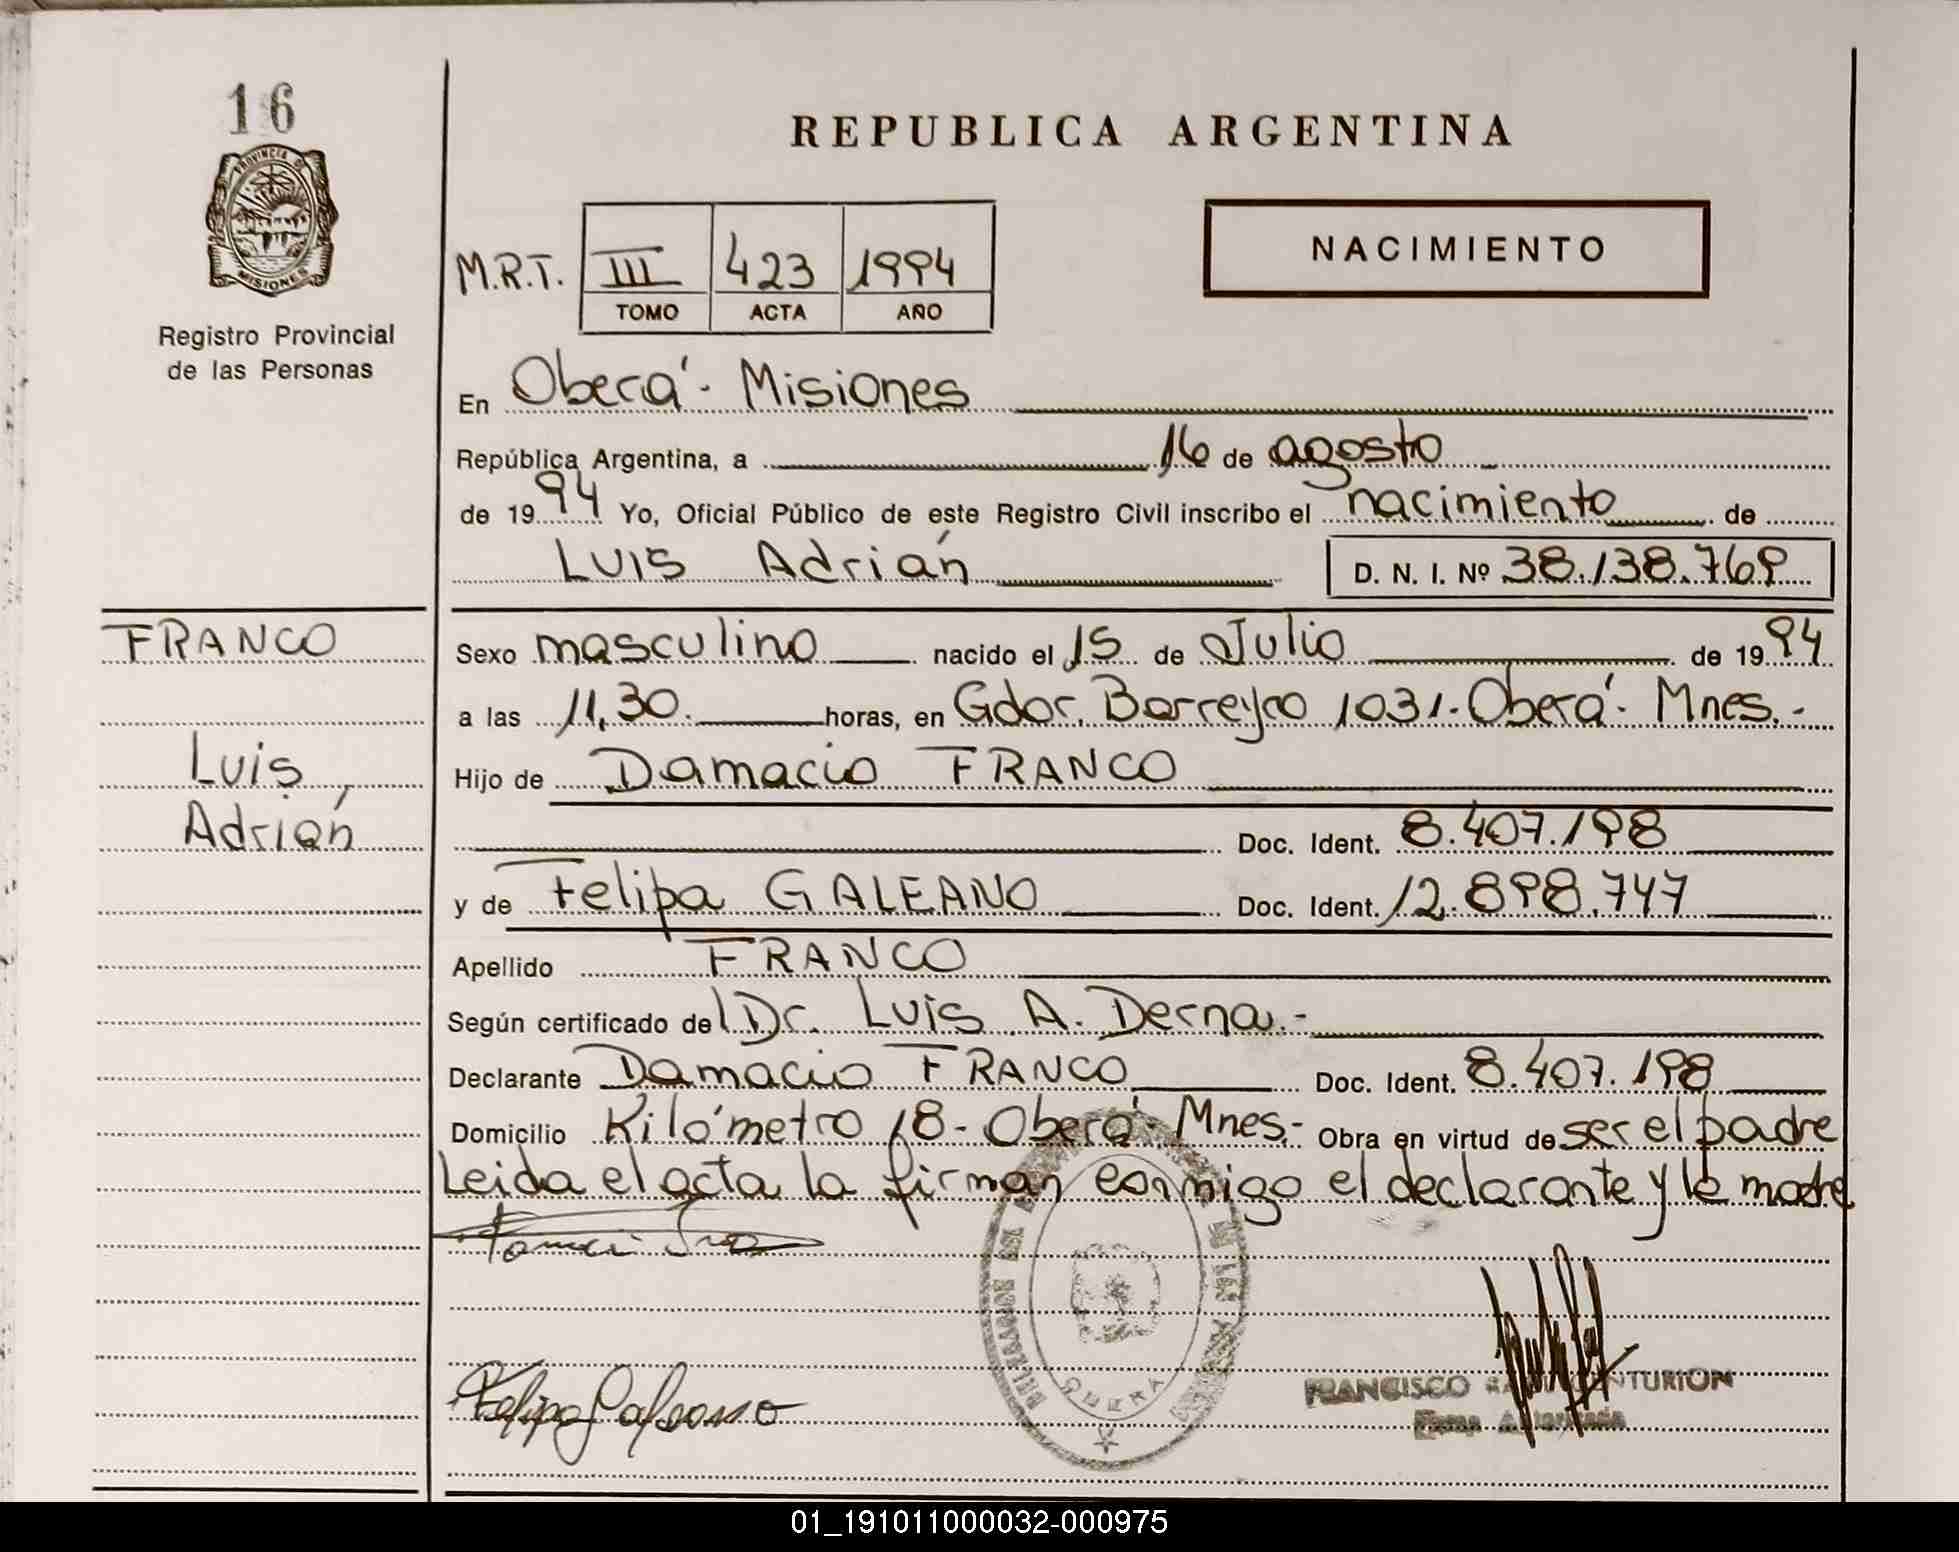 16
PROVINCIA DE
MISIONES
Registro Provincial
de las Personas
REPUBLICA ARGENTINA
M.R.T. III 423 1994
TOMO ACTA AÑO
NACIMIENTO
En Oberá - Misiones
República Argentina, a 16 de agosto
de 1994 Yo, Oficial Público de este Registro Civil inscribo el nacimiento de
Luis Adrián D. N. I. Nº 38.138.769
FRANCO
Luis
Adrián
Sexo masculino nacido el 15 de Julio de 1994
a las 11,30. horas, en Gdor. Barreyro 1031. Oberá - Mnes. -
Hijo de Damacio FRANCO
Doc. Ident. 8.407.198
y de Felipa GALEANO Doc. Ident. 12.898.747
Apellido FRANCO
Según certificado del Dr. Luis A. Derna. -
Declarante Damacio FRANCO Doc. Ident. 8.407.198
Domicilio Kilómetro 18 - Oberá - Mnes. - Obra en virtud de ser el padre
Leida el acta la firman conmigo el declarante y la madre
Felipa Galeano
OBERA
FRANCISCO